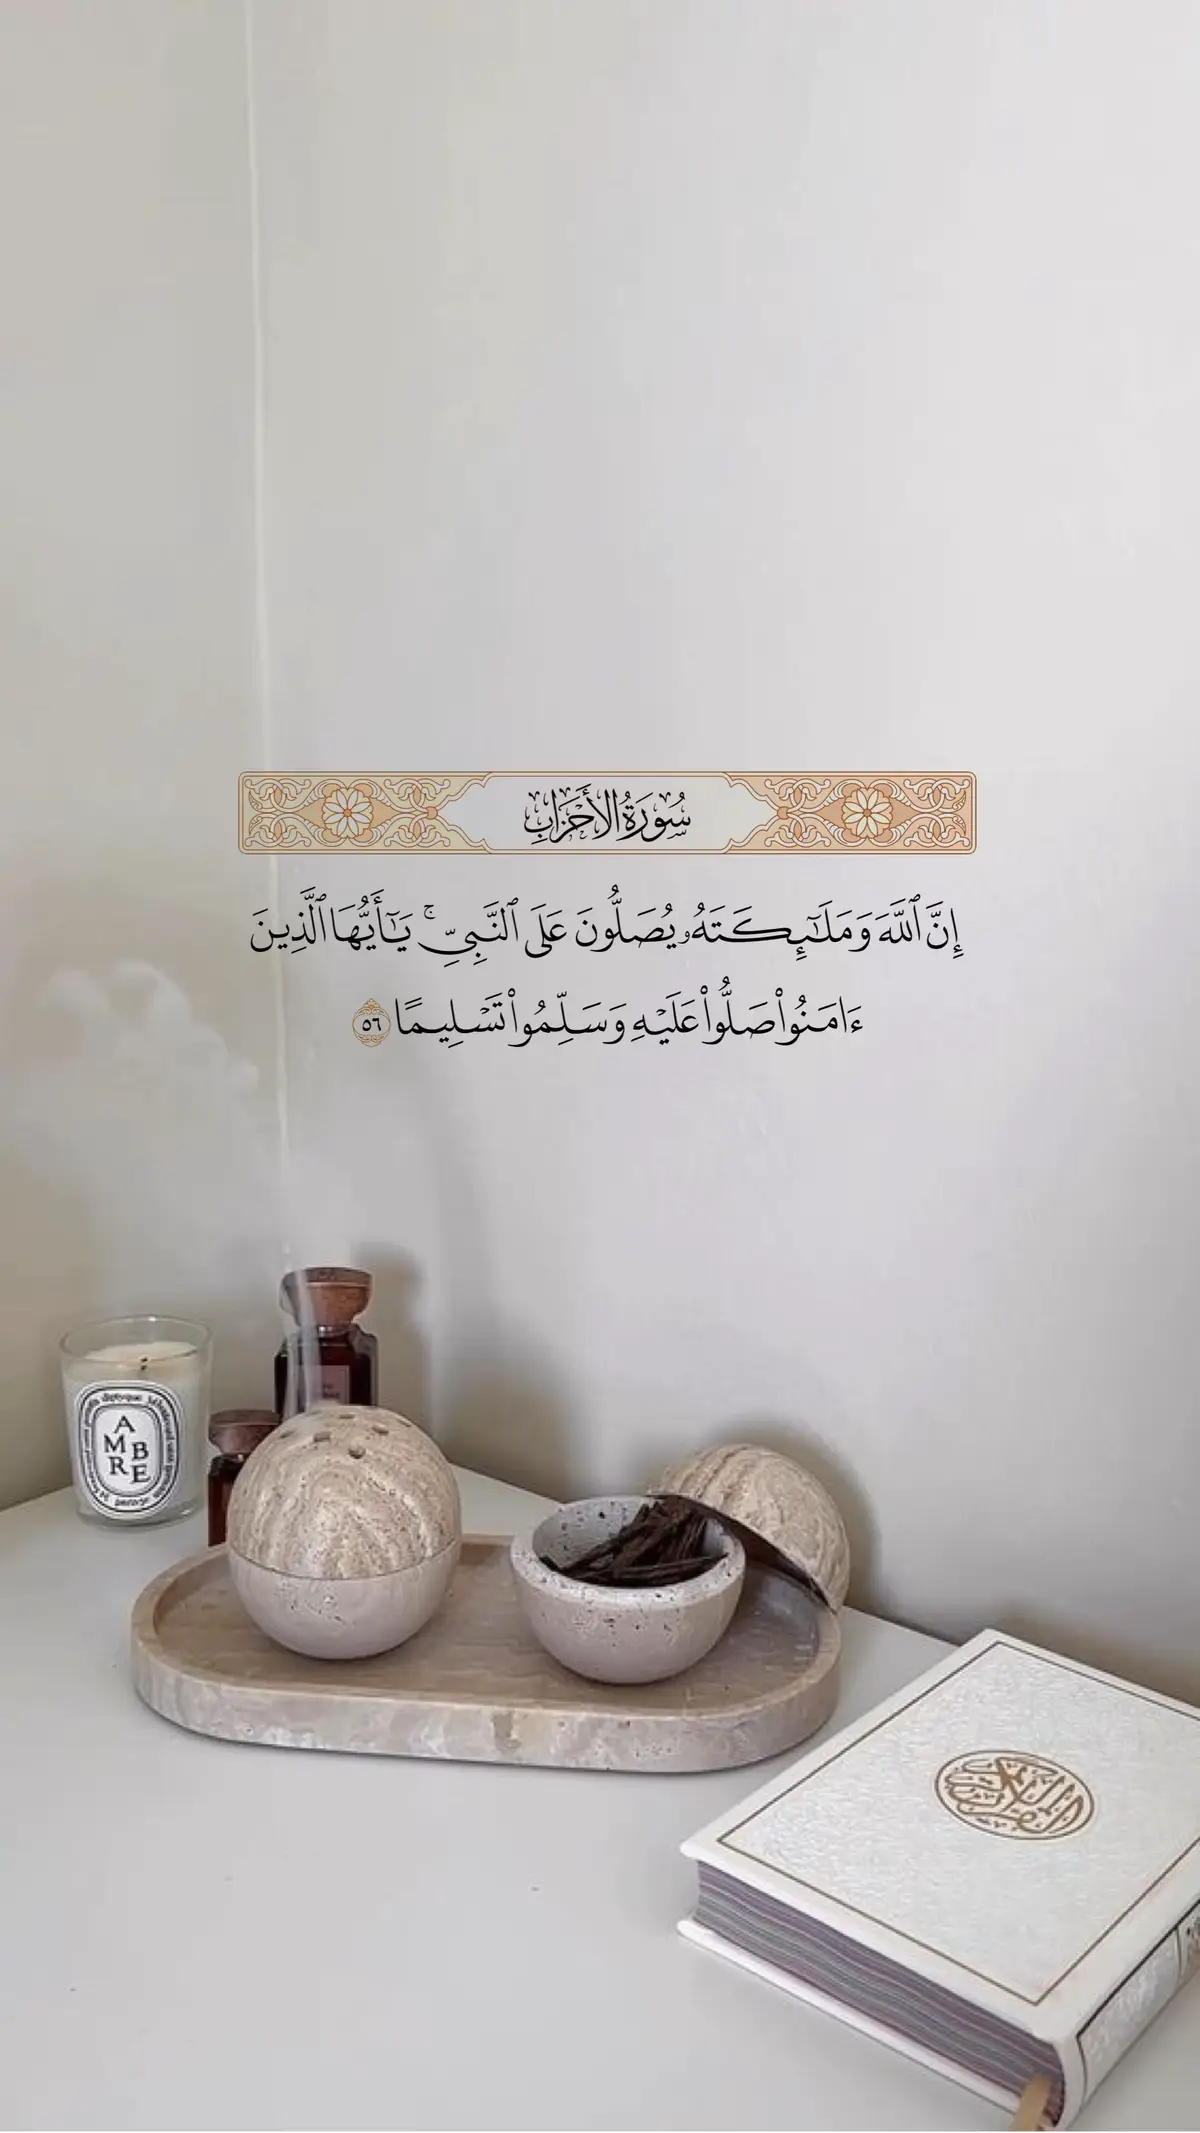 سُورَةُ الأَحْزَابِ
إِنَّ ٱللَّهَ وَمَلَـٰٓئِكَتَهُۥ يُصَلُّونَ عَلَى ٱلنَّبِىِّ ۚ يَـٰٓأَيُّهَا ٱلَّذِينَ
ءَامَنُوا۟ صَلُّوا۟ عَلَيْهِ وَسَلِّمُوا۟ تَسْلِيمًا ٥٦
diptyque
AMBRE
القرآن الكريم